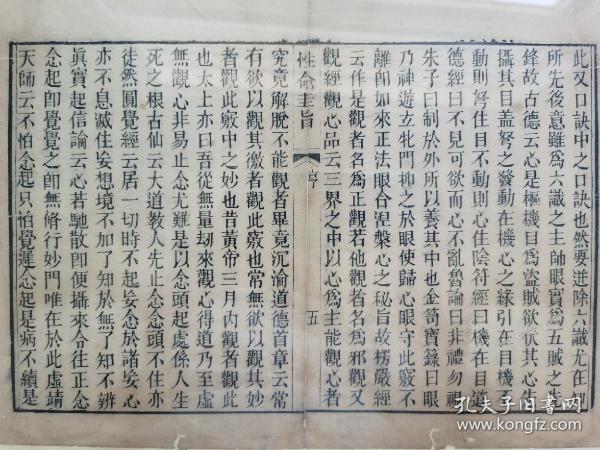 此又口訣中之口訣也然要迸除六識尤在
所先後意雖爲六識之主帥眼實爲五賊之
鋒故古德云心是樞機目爲盜賊欲伏其心先
攝其目盖弩之發動在機心之緣引在目機不
動則弩住目不動則心住陰符經曰機在目道
德經曰不見可欲而心不亂魯論曰非禮勿視
朱子曰制於外所以養其中也金笥寶籙曰眼
乃神遊玄牝門抑之於眼使歸心眼守此竅不
離即如來正法眼合涅槃心之秘旨故楞嚴經
云作是觀者名爲正觀若他觀者名爲邪觀又
觀經觀心品云三界之中以心爲主能觀心者
性命圭旨 亨 五
究竟解脫不能觀者畢竟沉淪道德首章云常
有欲以觀其徼者觀此竅也常無欲以觀其妙
者觀此竅中之妙也昔黃帝三月內觀者觀此
也太上亦曰吾從無量劫來觀心得道乃至虛
無觀心非易止念尤難是以念頭起處係人生
死之根古仙云大道教人先止念念頭不住亦
徒然圓覺經云居一切時不起妄念於諸妄心
亦不息滅住妄想境不加了知於無了知不辨
眞實起信論云心若馳散即便攝來令住正念
念起即覺覺之即無修行妙門唯在於此虛靖
天師云不怕念起只怕覺遲念起是病不續是
孔夫子旧書网
www.kongfz.com